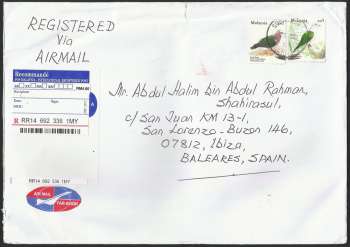 REGISTERED
Via
AIRMAIL
Malaysia
Malaysia
Recommandé
R
RR14 692 336 1MY
A
Mr. Abdul Halim bin Abdul Rahman,
Shahinasul,
c/ San Juan KM 13-1,
San Lorenzo- Buzon 146,
07812, Ibiza,
BALEARES, SPAIN.
RR14 692 336 1MY
AIR MAIL
PAR AVION